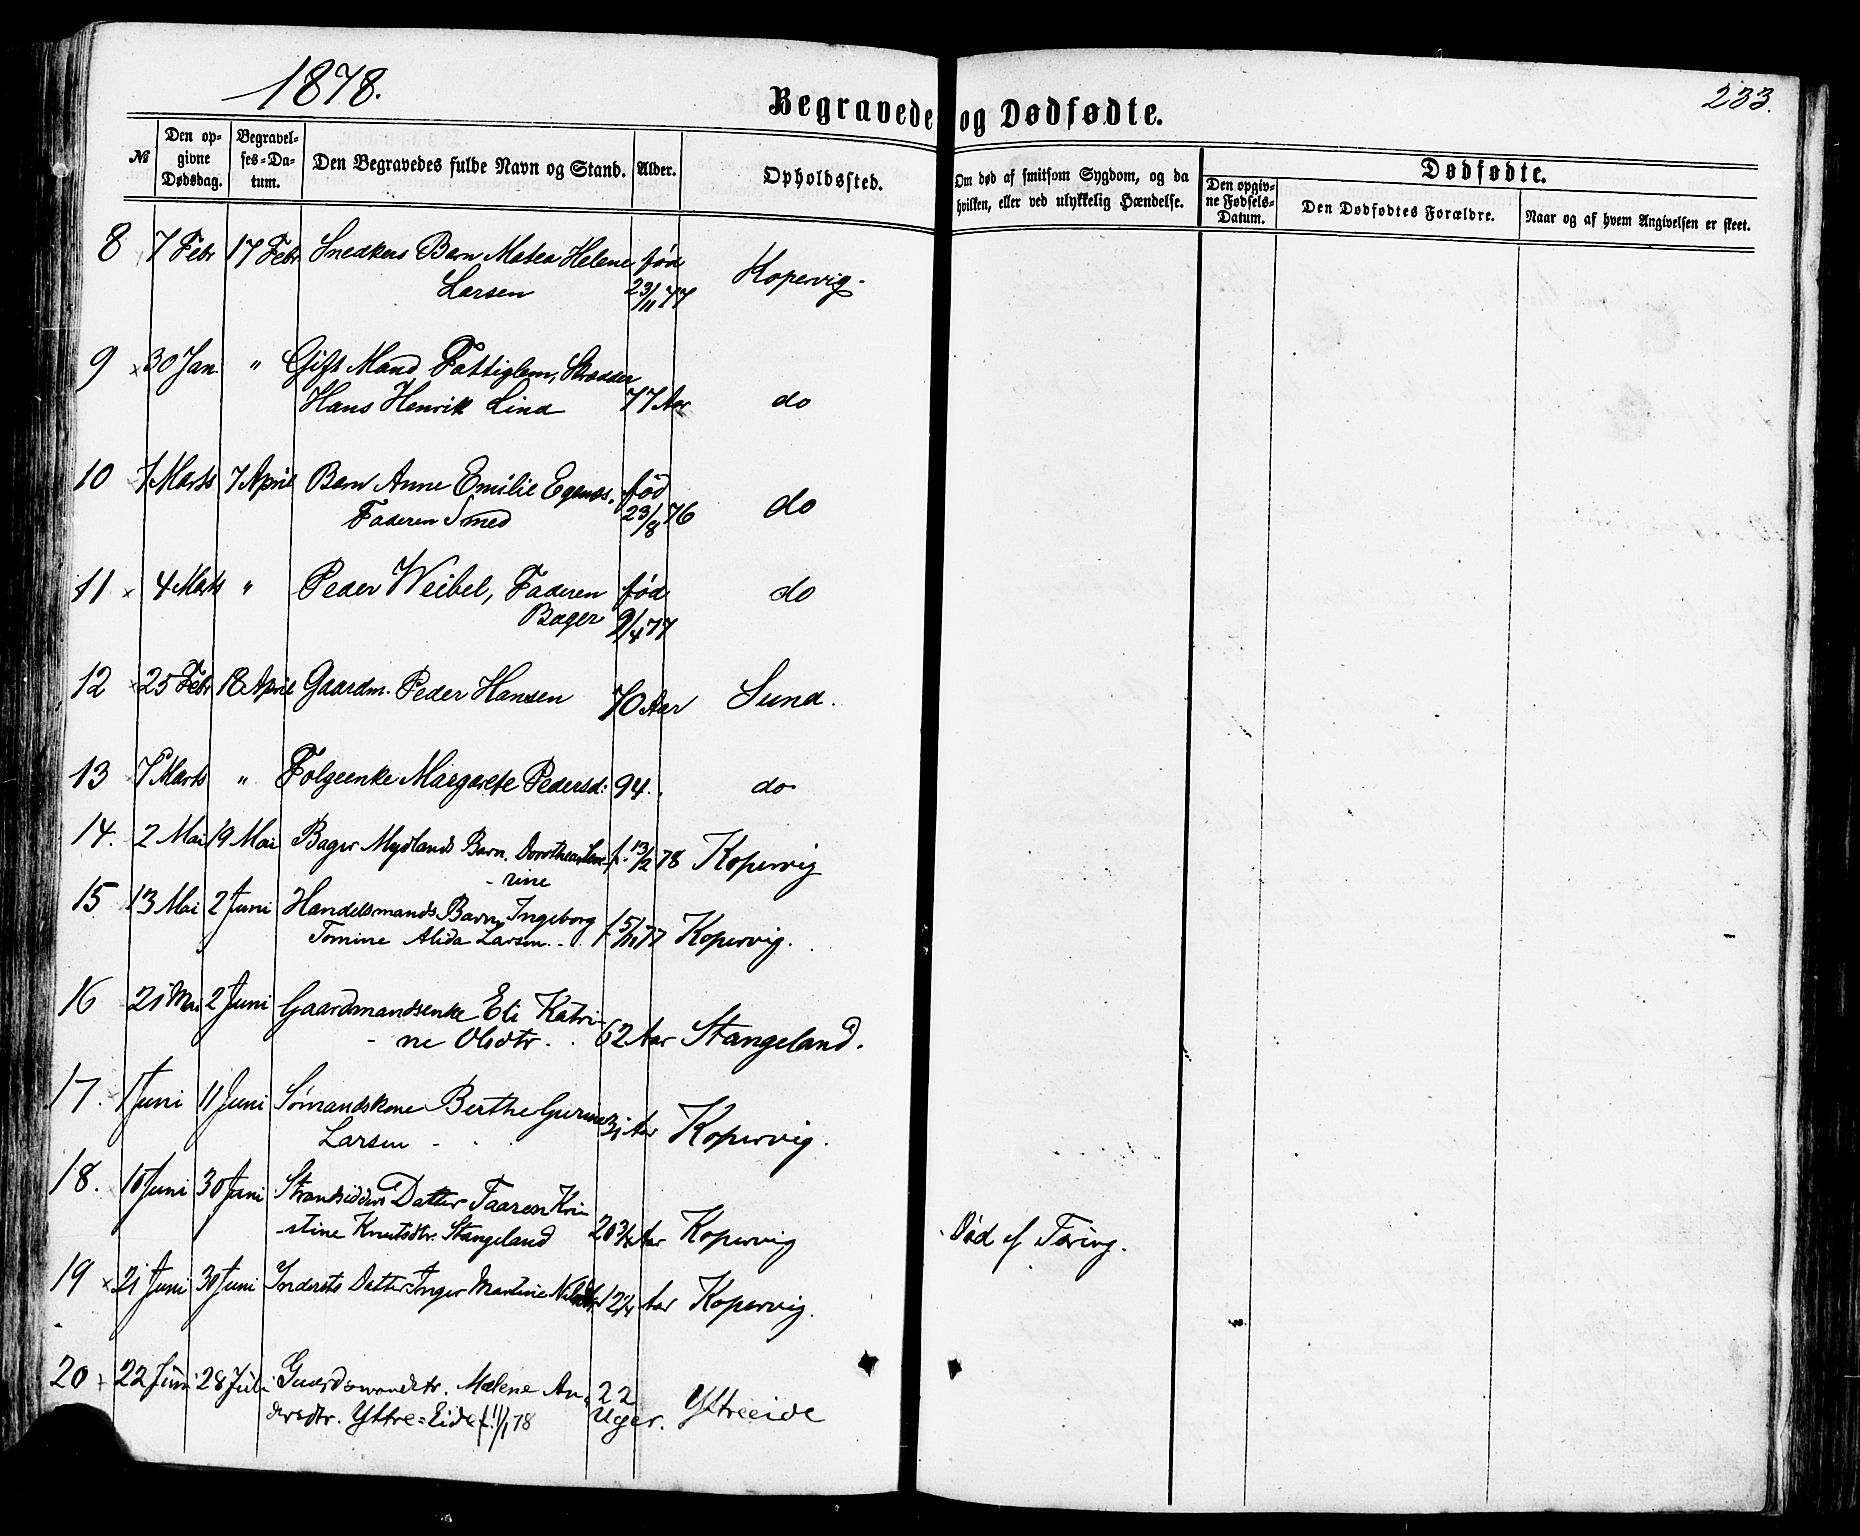 1878.
Begravede og Dødfødte.
233.
№
Den opgivne Dødsdag.
Begravelses-Datum.
Den Begravedes fulde Navn og Stand.
Alder.
Opholdssted.
Om død af smitsom Sygdom, og da hvilken, eller ved ulykkelig Hændelse.
Dødfødte.
Den opgivne Fødsels-Datum.
Den Dødfødtes Forældre.
Naar og af hvem Angivelsen er skeet.
8 7 Febr 17 Febr Snedkers Barn Matea Helene fød
Larsen 23/11 77 Kopervig.
9 × 30 Jan. " Gift Mand Fattiglem, Skrædder
Hans Henrik Lind 77 Aar do
10 7 Marts 7 April Barn Anne Emilie Egenæs. fød
Faderen Smed 23/8 76 do
11 × 4 Marts " Peder Weibel, Faderen fød do
Bager 9/4 77
12 × 25 Febr 18 April Gaardm. Peder Hansen 70 Aar Sund.
13 7 Marts " Følgeenke Margarete Pedersd: 94. do
14. 2 Mai 19 Mai Bager Mydlands Barn. Dorthea f. 13/2 78 Kopervig
-rine
15 13 Mai 2 Juni Handelsmands Barn, Ingeborg
Tomine Alida Larsen. f. 5/11 77 Kopervig.
16 21 Mai 2 Juni Gaardmandsenke Eli Katri-
-ne Olsdtr. 62 Aar Stangeland.
17. 1 Juni 11 Juni Sømandskone Berthe Gurine 31 Aar Kopervig.
Larsen
18. 10 Juni 30 Juni Strandsidders Datter Taaren Kri-
-stine Knutsdtr. Stangeland 20 3/4 Aar Kopervig Død af Tæring.
19 × 21 Juni 30 Juni Indersts Datter Inger Martine Nilsdtr 12 2/4 Aar Kopervig.
20 22 Juni 28 Juli Gaardmandsdtr. Malene An- 22
dersdtr. Yttre=Eide f. 11/1 78 Uger. Ytreeide